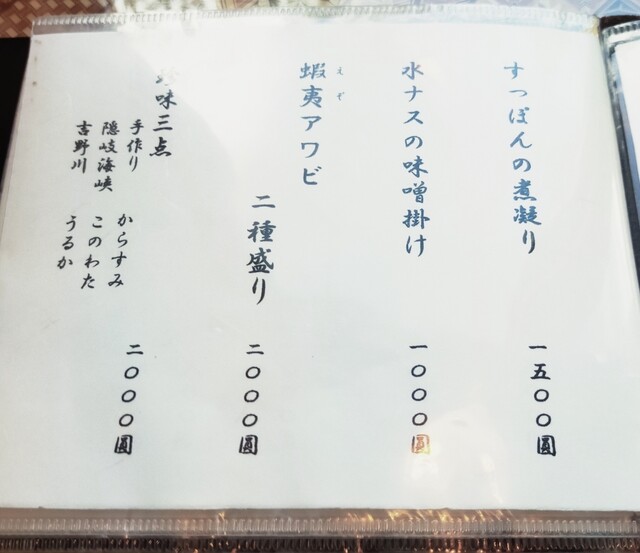 すっぽんの煮凝り
一五〇〇圓
水ナスの味噌掛け
一〇〇〇圓
蝦夷アワビ
えぞ
二種盛り
二〇〇〇圓
珍味三点
手作り からすみ
隠岐海峡 このわた
吉野川 うるか
二〇〇〇圓